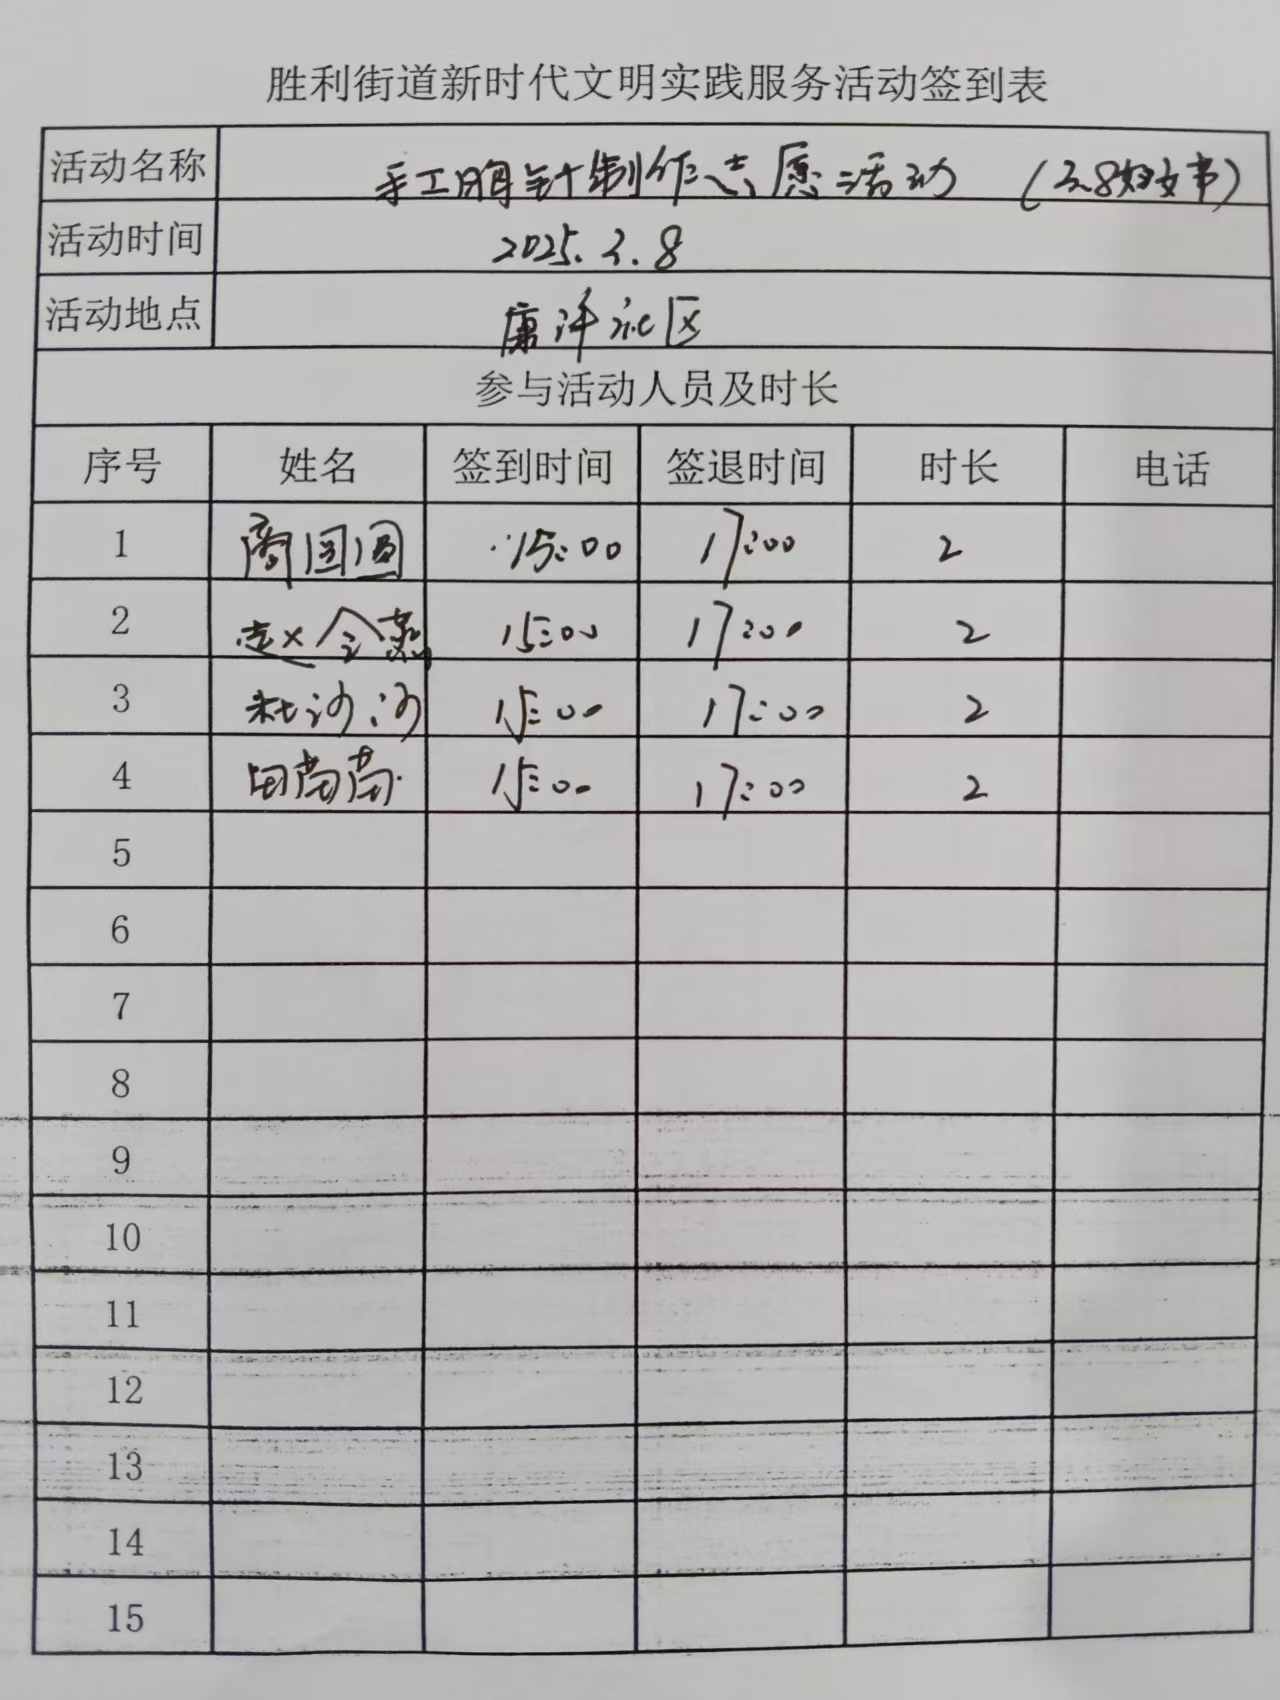 胜利街道新时代文明实践服务活动签到表
活动名称 手工胸针制作志愿活动 (3.8妇女节)
活动时间 2025.3.8
活动地点 康洋社区
参与活动人员及时长
序号 姓名 签到时间 签退时间 时长 电话
1 商圆圆 15:00 17:00 2
2 赵金燕 15:00 17:00 2
3 杜沙沙 15:00 17:00 2
4 田苗苗 15:00 17:00 2
5
6
7
8
9
10
11
12
13
14
15